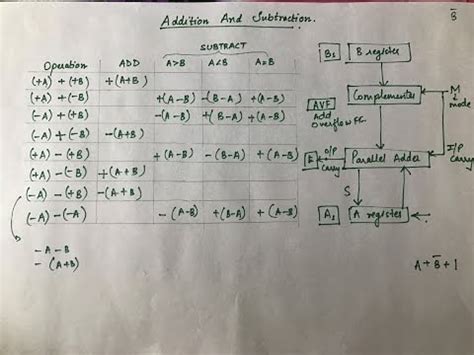 Addition And Subtraction.
B̅
SUBTRACT
Operation ADD A>B A<B A=B
(+A) + (+B) +(A+B)
(+A) + (-B) +(A-B) -(B-A) +(A-B)
(-A) + (+B) -(A-B) +(B-A) +(A-B)
(-A) + (-B) -(A+B)
(+A) - (+B) +(A-B) -(B-A) +(A-B)
(+A) - (-B) +(A+B)
(-A) - (+B) -(A+B)
(-A) - (-A) -(A-B) +(B-A) +(A-B)
- A - B
- (A+B)
Bs B register
Complementer M
mode
AVF
Add
Overflow FC
E O/P
carry Parallel Adder I/P
carry
S
As A register
A + B̅ + 1